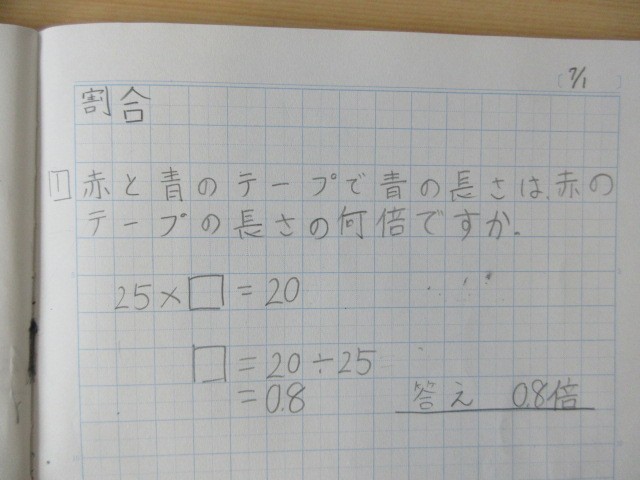 7/1
割合
1 赤と青のテープで青の長さは、赤の
テープの長さの何倍ですか。
25×□=20
□=20÷25
=0.8
答え 0.8倍